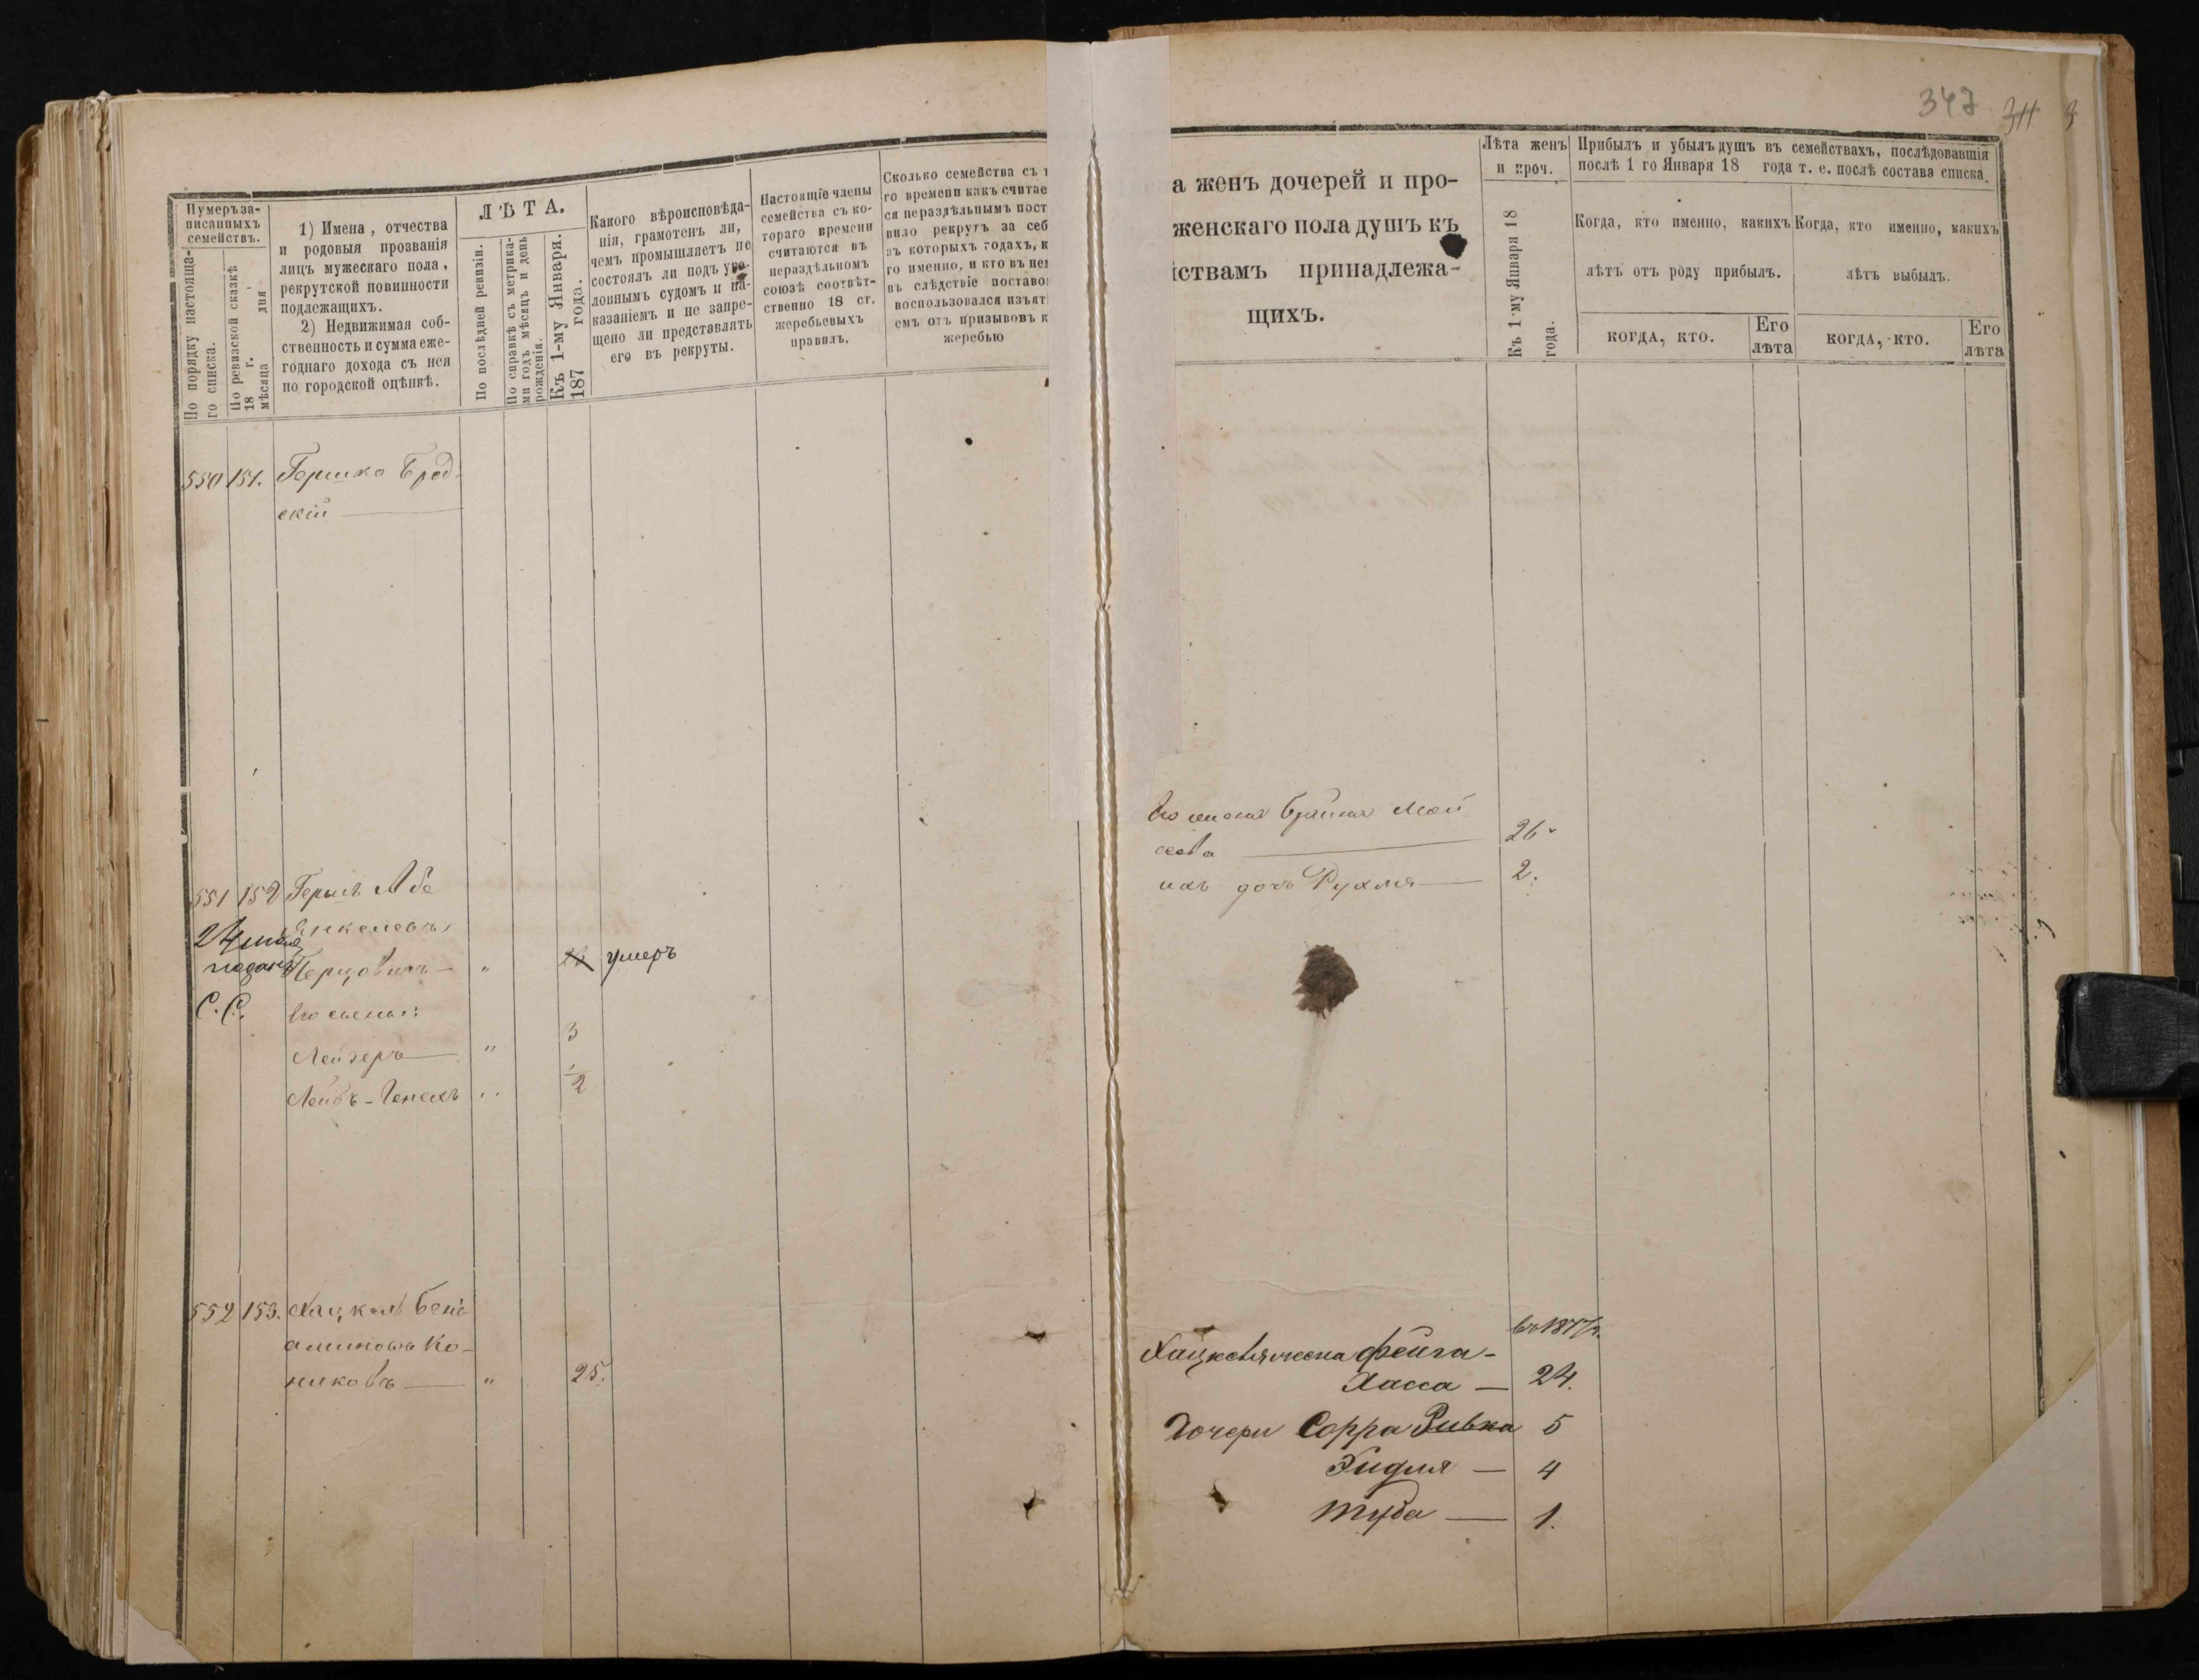 347
Нумеръ за-
писанныхъ
семействъ.
По порядку настояща-
го списка.
По ревизской сказкѣ
18 г.
мѣсяца дня
1) Имена, отчества
и родовыя прозванія
лицъ мужескаго пола,
рекрутской повинности
подлежащихъ.
2) Недвижимая соб-
ственность и сумма еже-
годнаго дохода съ нея
по городской оцѣнкѣ.
ЛѢТА.
По послѣдней ревизіи.
По справкѣ съ метрика-
ми годъ мѣсяцъ и день
рожденія.
Къ 1-му Января.
187 года.
Какого вѣроисповѣда-
нія, грамотенъ ли,
чемъ промышляетъ не
состоялъ ли подъ уго-
ловнымъ судомъ и на-
казаніемъ и не запре-
щено ли представлять
его въ рекруты.
Настоящіе члены
семейства съ ко-
тораго времени
считаются въ
нераздѣльномъ
союзѣ соотвѣт-
ственно 18 ст.
жеребьевыхъ
правилъ.
Сколько семейства съ т
го времени какъ считае
ся нераздѣльнымъ пост
вило рекрутъ за себ
въ которыхъ годахъ, к
го именно, и кто въ не
въ слѣдствіе поставо
воспользовался изъят
емъ отъ призывовъ к
жеребью
а женъ дочерей и про-
женскаго пола душъ къ
йствамъ принадлежа-
щихъ.
Лѣта женъ
и проч.
Къ 1-му Января 18
года.
Прибылъ и убылъ душъ въ семействахъ, послѣдовавшія
послѣ 1 го Января 18 года т. е. послѣ состава списка.
Когда, кто именно, какихъ
лѣтъ отъ роду прибылъ.
Когда, кто именно, какихъ
лѣтъ выбылъ.
когда, кто.
Его
лѣта
когда, кто.
Его
лѣта
550 151. Гершко Брод-
скій
Его жена Брайна Мой
сеева 26
ихъ дочь Рухля 2.
551 152 Гершъ Абе
Янкелевъ
Перцовичъ " умеръ
С.С. Его сыны:
Лейзеръ " 3
Лейбъ-Генехъ " 1/2
552 153. Хацкель Бені-
аминовъ Ко-
никовъ " 25.
въ 1877 г.
Хацкелья жена Фейга-
Хасса — 24.
Дочери Сорра Ривка 5
Эидля — 4
Туба — 1.